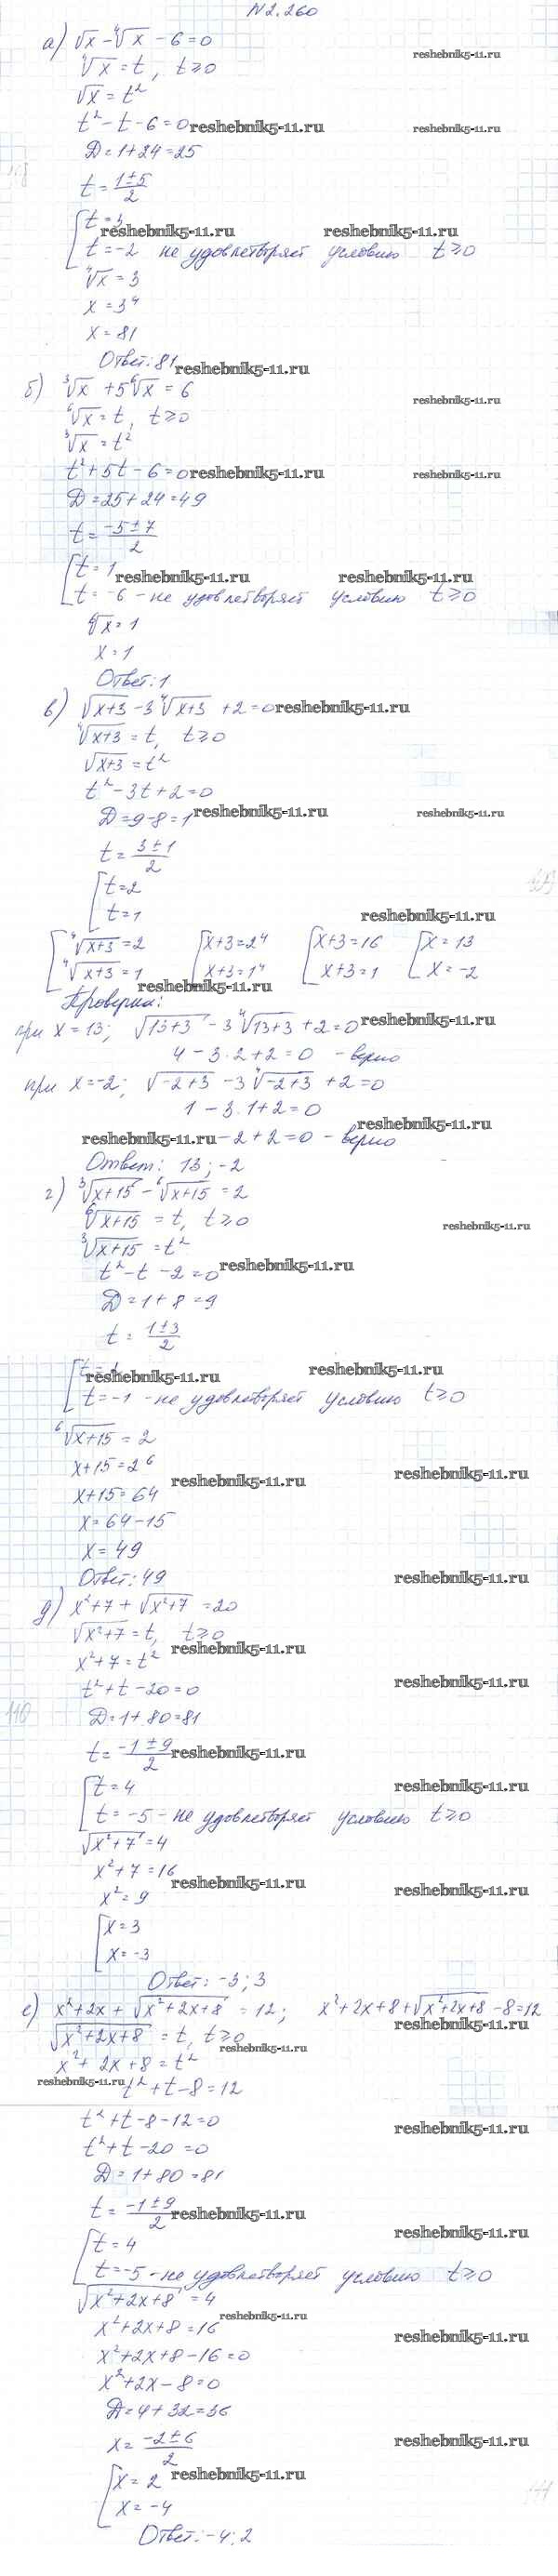 N 2.260
а) √x - ⁴√x - 6 = 0
reshebnik5-11.ru
⁴√x = t, t ≥ 0
√x = t²
t² - t - 6 = 0 reshebnik5-11.ru reshebnik5-11.ru
Д = 1 + 24 = 25
t = (1 ± 5)/2
[ t = 3
reshebnik5-11.ru reshebnik5-11.ru
t = -2 не удовлетворяет условию t ≥ 0
⁴√x = 3
x = 3⁴
x = 81
Ответ: 81 reshebnik5-11.ru
б) ³√x + 5⁶√x = 6
reshebnik5-11.ru
⁶√x = t, t ≥ 0
³√x = t²
t² + 5t - 6 = 0 reshebnik5-11.ru reshebnik5-11.ru
Д = 25 + 24 = 49
t = (-5 ± 7)/2
[ t = 1
reshebnik5-11.ru reshebnik5-11.ru
t = -6 - не удовлетворяет условию t ≥ 0
⁶√x = 1
x = 1
Ответ: 1
в) √(x+3) - 3⁴√(x+3) + 2 = 0 reshebnik5-11.ru
⁴√(x+3) = t, t ≥ 0
√(x+3) = t²
t² - 3t + 2 = 0
Д = 9 - 8 = 1 reshebnik5-11.ru reshebnik5-11.ru
t = (3 ± 1)/2
[ t = 2
t = 1 reshebnik5-11.ru
[ ⁴√(x+3) = 2 [ x+3 = 2⁴ [ x+3 = 16 [ x = 13
⁴√(x+3) = 1 x+3 = 1⁴ x+3 = 1 x = -2
reshebnik5-11.ru
Проверка:
при x = 13; √(13+3) - 3⁴√(13+3) + 2 = 0 reshebnik5-11.ru
4 - 3·2 + 2 = 0 - верно
при x = -2; √(-2+3) - 3⁴√(-2+3) + 2 = 0
1 - 3·1 + 2 = 0
reshebnik5-11.ru
reshebnik5-11.ru -2 + 2 = 0 - верно
Ответ: 13; -2
г) ³√(x+15) - ⁶√(x+15) = 2
⁶√(x+15) = t, t ≥ 0
reshebnik5-11.ru
³√(x+15) = t²
t² - t - 2 = 0 reshebnik5-11.ru
Д = 1 + 8 = 9
t = (1 ± 3)/2
reshebnik5-11.ru reshebnik5-11.ru
t = -1 - не удовлетворяет условию t ≥ 0
⁶√(x+15) = 2
x+15 = 2⁶
reshebnik5-11.ru reshebnik5-11.ru
x+15 = 64
x = 64 - 15
x = 49
Ответ: 49 reshebnik5-11.ru
д) x² + 7 + √(x²+7) = 20
√(x²+7) = t, t ≥ 0
reshebnik5-11.ru
x² + 7 = t²
t² + t - 20 = 0 reshebnik5-11.ru
110
Д = 1 + 80 = 81
t = (-1 ± 9)/2 reshebnik5-11.ru reshebnik5-11.ru
[ t = 4 reshebnik5-11.ru
t = -5 - не удовлетворяет условию t ≥ 0
√(x²+7) = 4
x² + 7 = 16
reshebnik5-11.ru reshebnik5-11.ru
x² = 9
[ x = 3
x = -3
Ответ: -3; 3
е) x² + 2x + √(x²+2x+8) = 12; x² + 2x + 8 + √(x²+2x+8) - 8 = 12
reshebnik5-11.ru
√(x²+2x+8) = t, t ≥ 0
reshebnik5-11.ru
x² + 2x + 8 = t²
reshebnik5-11.ru t² + t - 8 = 12
t² + t - 8 - 12 = 0 reshebnik5-11.ru
t² + t - 20 = 0
Д = 1 + 80 = 81
t = (-1 ± 9)/2 reshebnik5-11.ru reshebnik5-11.ru
[ t = 4 reshebnik5-11.ru
t = -5 - не удовлетворяет условию t ≥ 0
√(x²+2x+8) = 4
reshebnik5-11.ru
x² + 2x + 8 = 16 reshebnik5-11.ru
x² + 2x + 8 - 16 = 0
x² + 2x - 8 = 0
Д = 4 + 32 = 36
x = (-2 ± 6)/2 reshebnik5-11.ru
[ x = 2 reshebnik5-11.ru
x = -4
Ответ: -4; 2